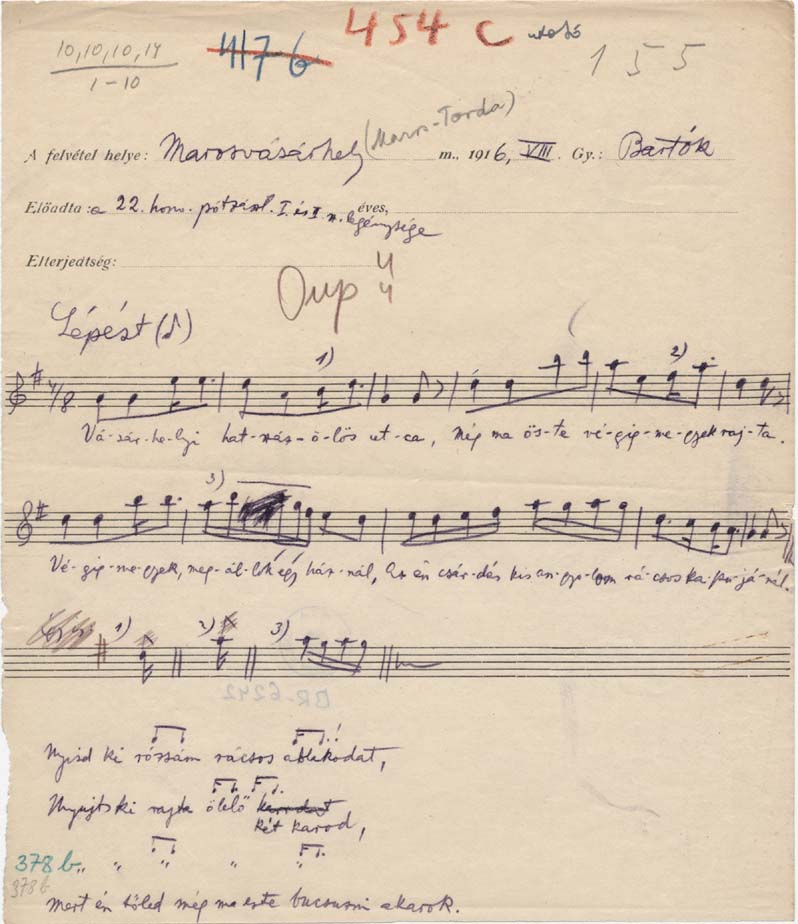 10, 10, 10, 14
1-10
417 b
454 c utolsó
155
A felvétel helye: Marosvásárhely (Maros-Torda) m., 1916, VIII. Gy.: Bartók
Előadta: a 22. honv. pótzászl. I. és II. éves, legénysége
Elterjedtség:
4
4
Lépést (♪)
4/8
1)
2)
Vá-sár-he-lyi hat-van-ö-lös ut-ca, Még ma ös-te vé-gig-me-gyek raj-ta.
3)
Vé-gig-me-gyek, meg-ál-lok égy ház-nál, Az én csár-dás kis an-gya-lom rá-csos ka-pu-já-nál.
1) 2) 3)
BR-6242
Nyisd ki rózsám rácsos ablakodat,
Nyujts ki rajta ölelő karodat
két karod,
378 b „ „ „ „ „
378 b
mert én tőled még ma este bucsuzni akarok.